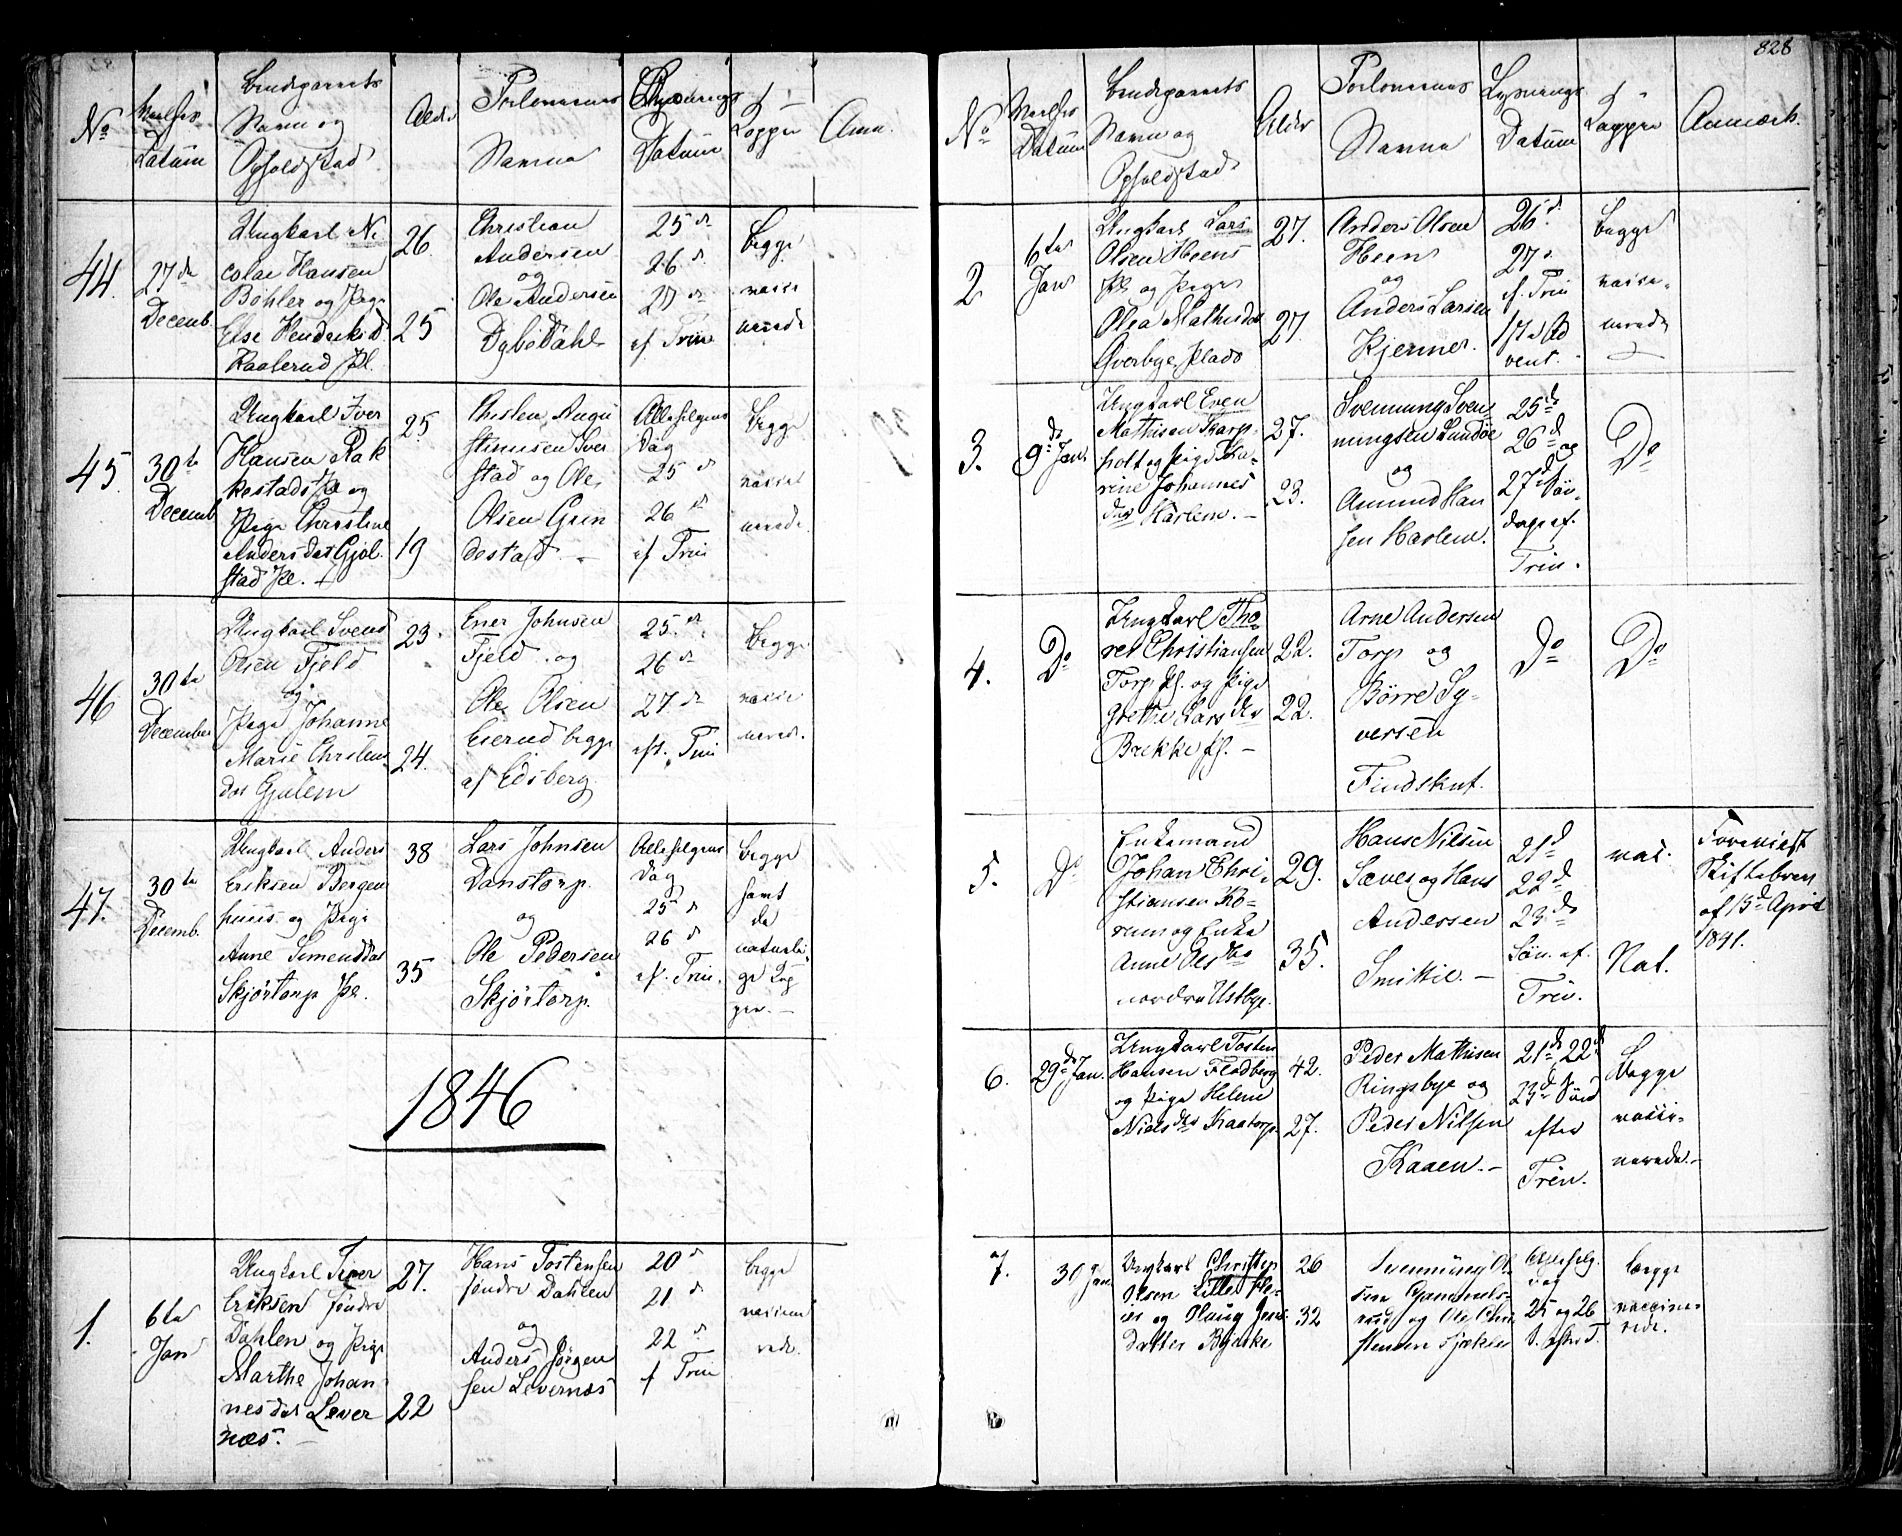 828
No
Datum
Brudeparrets
Navn og
Opholdstad
Alder
Forlovernes
Navne
Lysnings
Datum
Kopper
Anm.
44.
27de
Decemb.
Ungkarl Ni
colai Hansen
Bøhler og Pige
Else Henderksd.
Kaalerud Pl.
26
25
Christian
Andersen
og
Ole Andersen
Dybedahl
25de
26de
27de
ef Trin
begge
vacci
nerede
45.
30te
Decemb
Ungkarl Iver
Hansen Rak
kestad Pl og
Pige Christine
Andersdat Gjøl
stad Pl.
25
19
Christen Augu
stinusen Sver
stad og Ole
Olsen Grin
destad
Allehelgens
Dag
25de
26de
ef Trin
begge
vacci
nerede
46
30te
December
Ungkarl Svend
Olsen Fjeld
og
Pige Johanne
Marie Christens
dat Gjulem
23.
24.
Ener Johnsen
Fjeld og
Ole Olsen
Eierud begge
af Edsberg
25de
26de
27de
eft. Trin
begge
vacci
nerede.
47.
30te
Decemb.
Ungkarl Anders
Eriksen Bergen
huus og Pige
Anne Simensdat
Skjørtorp Pl.
38
35
Lars Johnsen
Danstorp
og
Ole Pedersen
Skjørtorp.
Allehelgens
Dag
25de
26de
ef. Trin.
begge
havt
de
naturli
ge Kop
per.
1846
1.
6te
Jan
Ungkarl Iver
Eriksen søndre
Dahlen og Pige
Marthe Johan
nesdat Lever
næs.
27.
22
Hans Tostensen
søndre Dahlen
og
Anders Jørgen
sen Levernæs
20de
21de
22de
f Trin
begge
vaccine
rede.
No
Datum
Brudeparrets
Navn og
Opholdstad
Alder
Forlovernes
Navne
Lysnings
Datum
Kopper
Anmærk.
2
6te
Jan
Ungkarl Lars
Olsen Heens
Pl og Pige
Olea Mathisdat
Øverbye Plads
27.
27.
Anders Olsen
Heen
og
Anders Larsen
Kjermer.
26de
27de
ef. Trin
1ste Ad
vent.
begge
vacci
nerede
3.
9de Jan.
Ungkarl Even
Mathisen Karp
holt og Pige Ka-
rine Johannes
dat Harlem.
27.
23.
Svennung Sven-
ningsen Sundøe
og
Amund Han
sen Harlem.
25de
26de og
27de Søn-
dage ef.
Trin.
Do
4.
Do
Ungkarl Tho-
rer Christiansen
Torp Pl. og Pige
Grethe Larsdat
Brekke Pl.
22.
22.
Arne Andersen
Torp og
Børre Sy-
versen
Findskut.
Do
Do
5.
Do
Enkemand
Johan Chri-
stiansen Ko-
rum og Enke
Anne Olsdat
nordre Ustbye.
29.
35.
Hans Nilsen
Sæves og Hans
Andersen
Smittie.
21de
22de
23de
Søn. ef.
Trin.
vac.
Nat.
Foreviist
Skiftebrev
af 13de April
1841.
6.
29de Jan.
Ungkarl Tosten
Hansen Flodberg
og Pige Helene
Nielsdat Kaatorp
42.
27.
Peder Mathisen
Ringsbye og
Peder Nilsen
Kaaen.
21de 22de
23de Sønd
efter
Trin.
Begge
vacci-
nerede.
7.
30 Jan.
Ungkarl Christop
Olsen Lille Kle-
ier og Olaug Jens
datter Bjærke
26
32
Svennung Ol
sen Gammels-
rud og Ole Chri
stensen Bjærke
Allehelg.
Dag
25 og 26
S. efter T.
begge
vaccine-
rede.